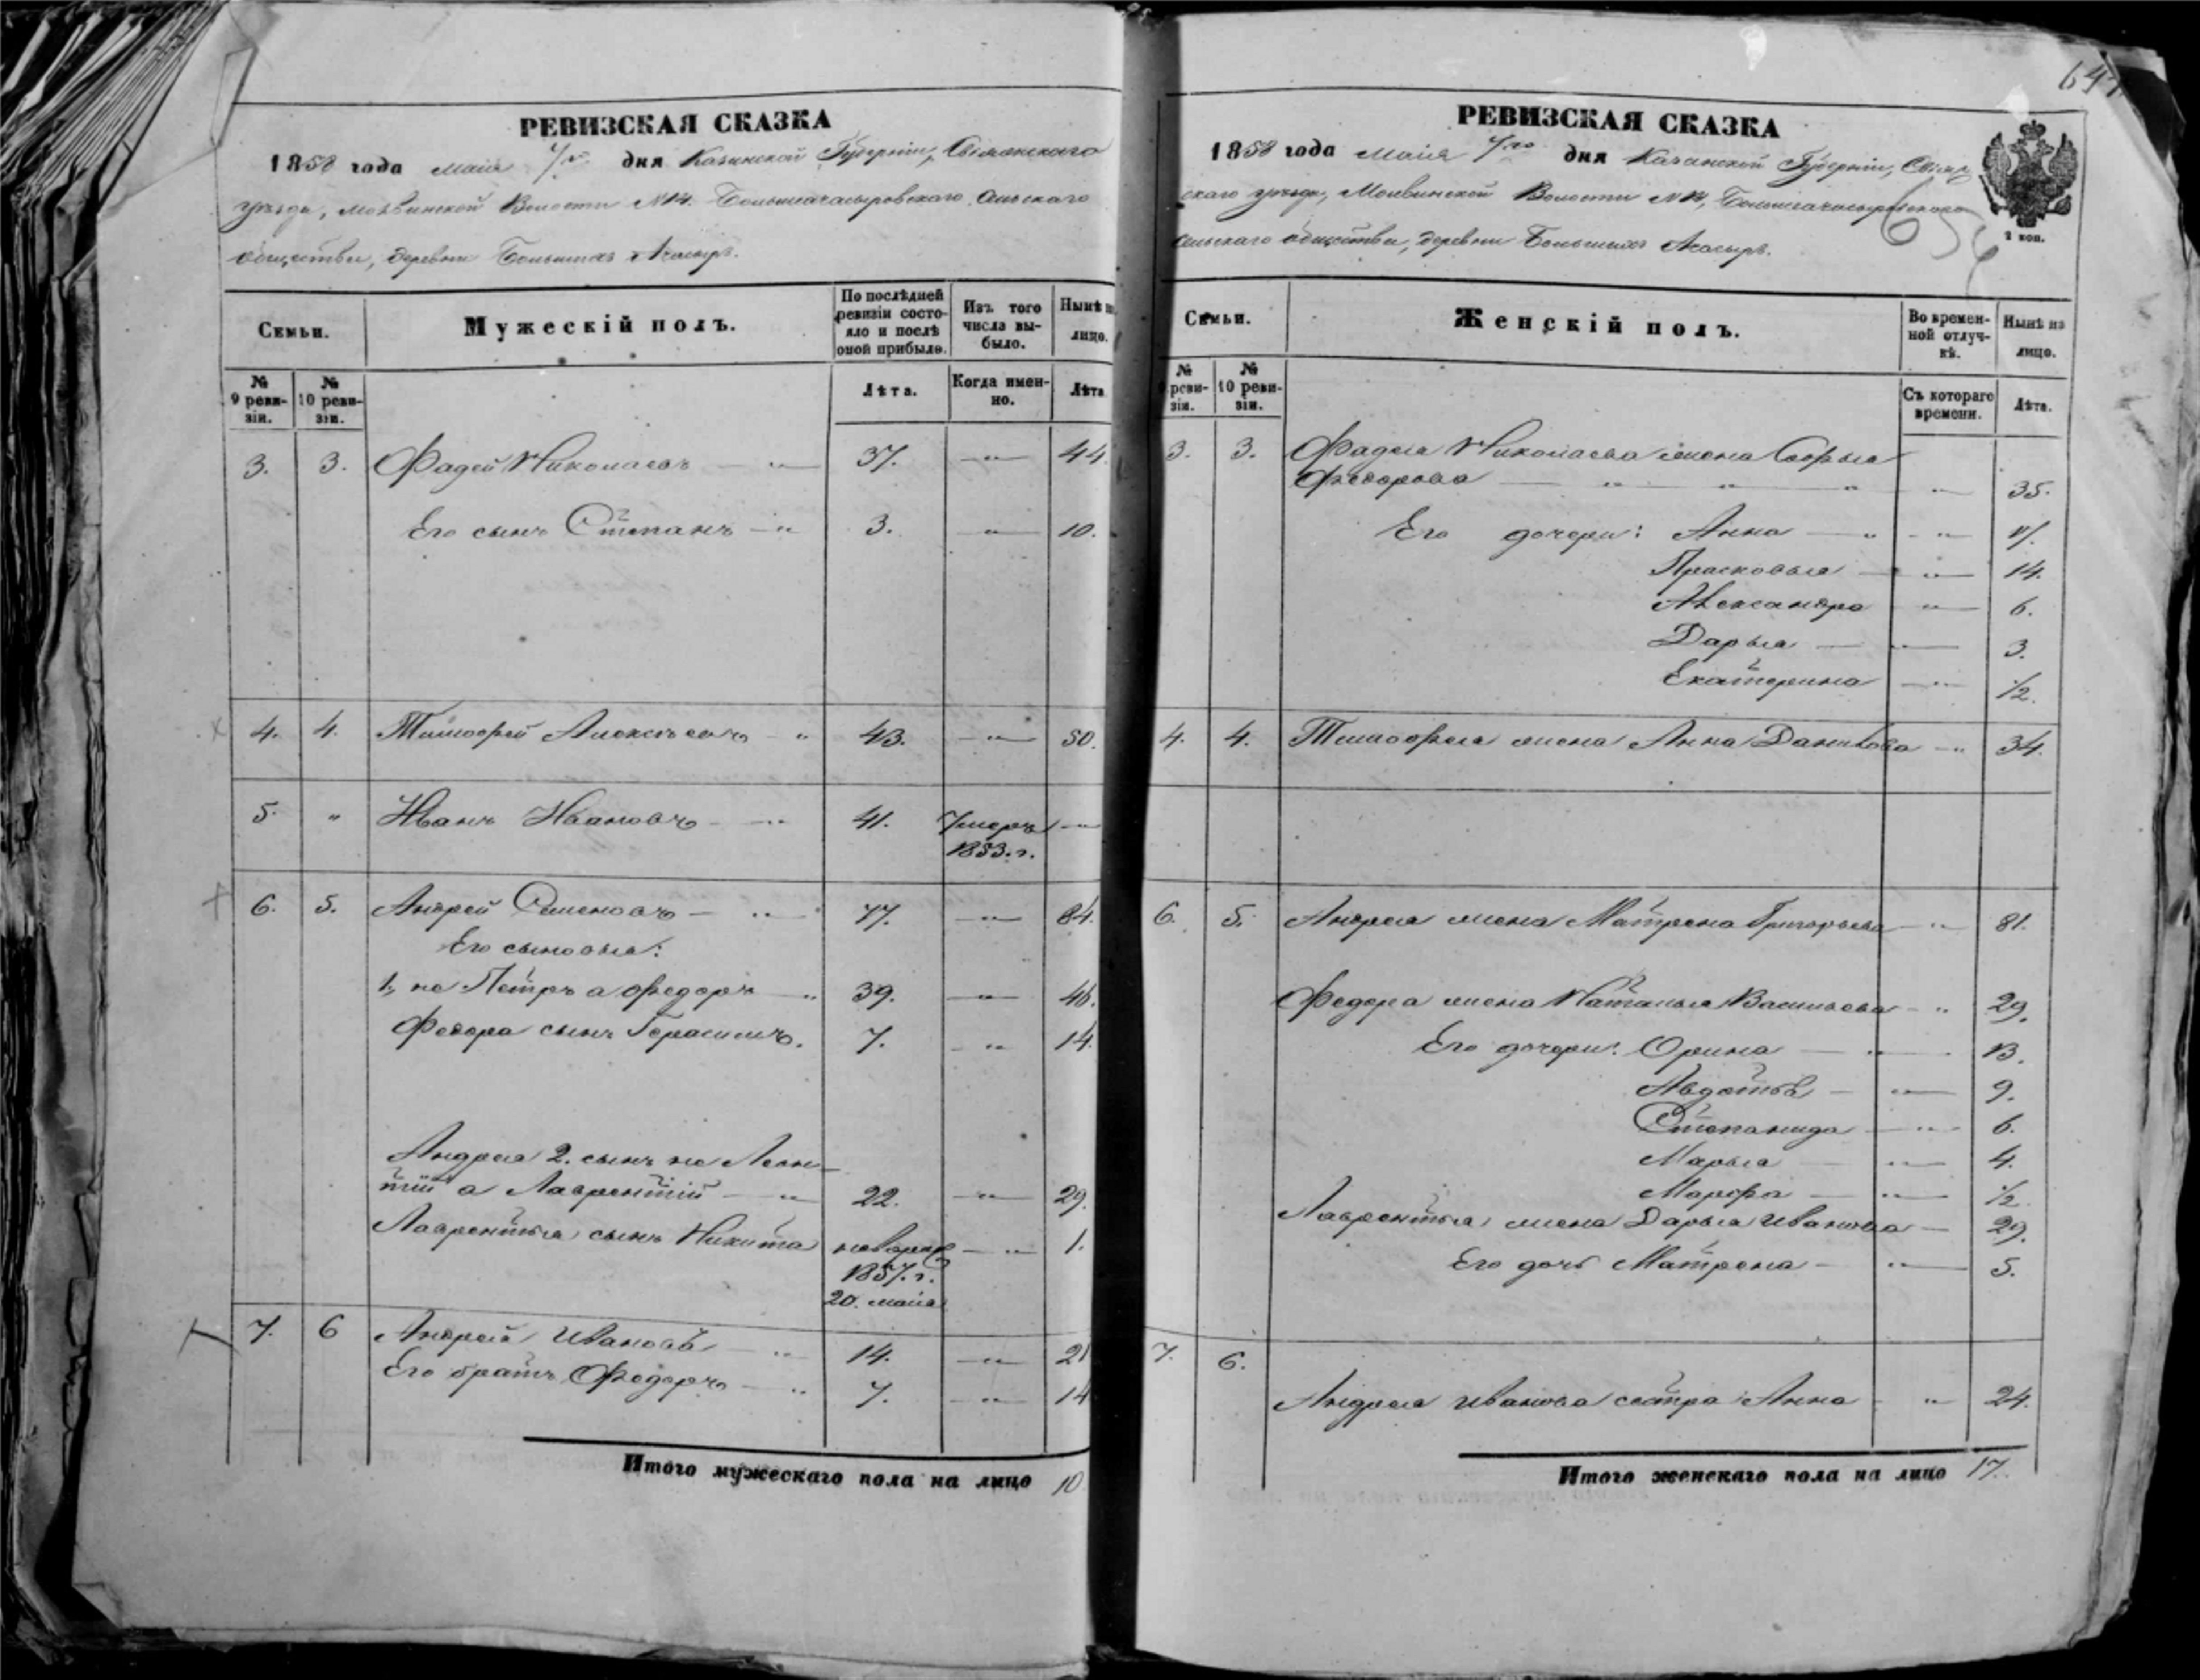 РЕВИЗСКАЯ СКАЗКА
1858 года Маія 7го дня Казанской Губерніи, Свіяжскаго
уѣзда, Молвинской Волости №14. Большеачасыровскаго сельскаго
общества, деревни Большихъ Ачасыръ.
Семьи.
Мужескій полъ.
По послѣдней ревизіи состояло и послѣ оной прибыло.
Изъ того числа выбыло.
Нынѣ на лицо.
№ 9 ревизіи.
№ 10 ревизіи.
Лѣта.
Когда именно.
Лѣта
3. 3. Фадей Николаевъ — " 37. — " — 44.
Его сынъ Степанъ — " 3. — " — 10.
4. 4. Тимофей Алексѣевъ — " 43. — " — 50.
5. " Иванъ Ивановъ — " — 41. Умеръ — " —
1853. г.
6. 5. Андрей Семеновъ — " — 77. — " — 84.
Его сыновья:
1, не Петръ а Федоръ — " 39. — " — 46.
Федора сынъ Герасимъ. 7. — " 14.
Андрея 2. сынъ не Леон-
тій а Лаврентій — " 22. — " — 29.
Лаврентья сынъ Никита новорож — " 1.
1857. г.
20. маія
7. 6 Андрей Ивановъ — " 14. — " — 21
Его братъ Федоръ — " 7. — " — 14
Итого мужескаго пола на лицо 10
641
РЕВИЗСКАЯ СКАЗКА
1858 года Маія 7го дня Казанской Губерніи, Свіяж
скаго уѣзда, Молвинской Волости №14, Большеачасыровскаго
сельскаго общества, деревни Большихъ Ачасыръ.
2 коп.
Семьи.
Женскій полъ.
Во временной отлучкѣ.
Нынѣ на лицо.
№ 9 ревизіи.
№ 10 ревизіи.
Съ котораго времени.
Лѣта.
3. 3. Фадея Николаева жена Софья
Федорова — " — " — " — " — 35.
Его дочери: Анна — " — " — 17.
Прасковья — " — 14.
Александра — " — 6.
Дарья — " — 3.
Екатерина — " — 1/2.
4. 4. Тимофея жена Анна Данилова — " 34.
6. 5. Андрея жена Матрена Григорьева — " 81.
Федора жена Наталья Васильева — " 29.
Его дочери: Орина — " — 13.
Авдотья — " — 9.
Степанида — " — 6.
Марья — " — 4.
Марфа — " — 1/2
Лаврентья жена Дарья Иванова — 29.
Его дочь Матрена — " — 5.
7. 6.
Андрея Иванова сестра Анна — " 24.
Итого женскаго пола на лицо 17.